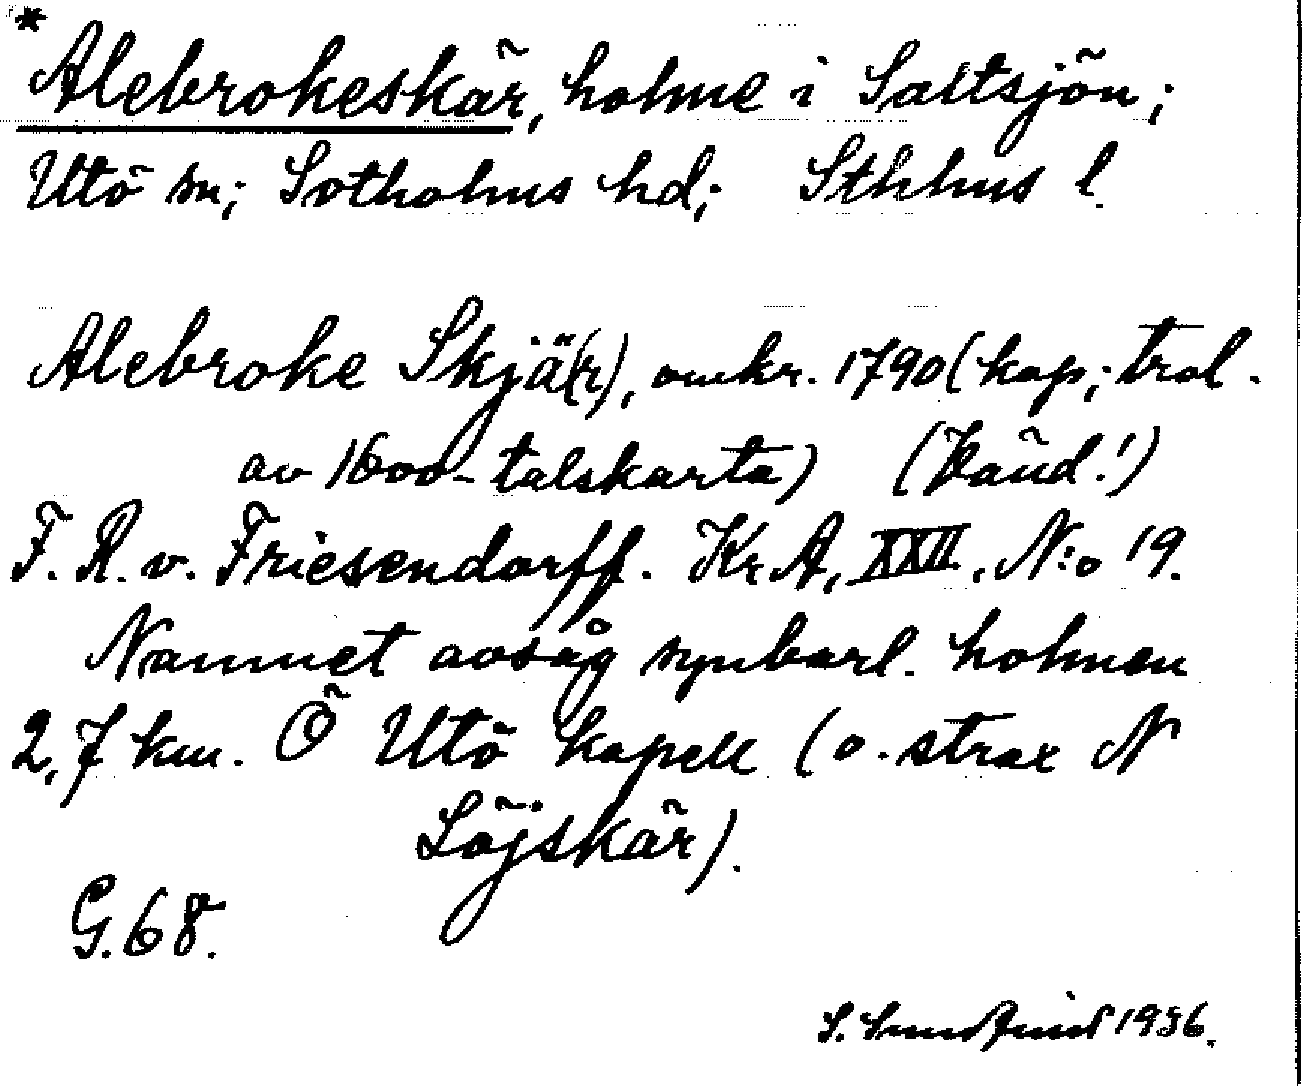 *Alebrokeskär, holme i Saltsjön;
Utö sn; Sotholms hd; Sthlms l.
Alebroke Skjä(r), omkr. 1790 (kop; trol.
av 1600-talskarta) (Känd!)
F. R. v. Friesendorff. Kr A, XXII, N:o 19.
Namnet avsåg synbarl. holmen
2,7 km. Ö Utö kapell (o. strax N
Löjskär).
G. 68.
S. 1936.